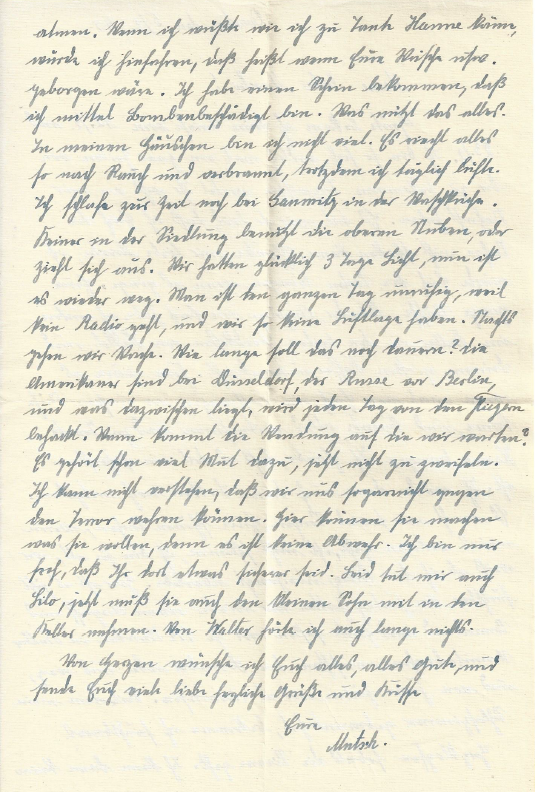 atmen. Wenn ich wüßte wie ich zu Tante Hanne käme,
würde ich hinfahren, das heißt wenn Eure Wäsche usw.
geborgen wäre. Ich habe einen Schein bekommen, daß
ich mittel Bombenbeschädigt bin. Was nützt das alles.
In meinem Häuschen bin ich nicht viel. Es riecht alles
so nach Rauch und verbrannt, trotzdem ich täglich lüfte.
Ich schlafe zur Zeit noch bei in der Waschküche.
Keiner in der Siedlung benutzt die oberen Stuben, oder
zieht sich aus. Wir hatten glücklich 3 Tage Licht, nun ist
es wieder weg. Man ist den ganzen Tag unruhig, weil
kein Radio geht, und wir so keine Luftlage haben. Nachts
gehen wir Wache. Wie lange soll das noch dauern? Die
Amerikaner sind bei Düsseldorf, der Russe vor Berlin,
und was dazwischen liegt, wird jeden Tag von den Fliegern
behackt. Wann kommt die Wendung auf die wir warten?
Es gehört schon viel Mut dazu, jetzt nicht zu zweifeln.
Ich kann nicht verstehen, daß wir uns sogarnicht gegen
den Terror wehren können. Hier können sie machen
was sie wollen, denn es ist keine Abwehr. Ich bin nur
froh, daß Ihr dort etwas sicherer seid. Leid tut mir auch
Lilo, jetzt muß sie auch den kleinen Sohn mit in den
Keller nehmen. Von Walter hörte ich auch lange nichts.
Von Herzen wünsche ich Euch alles, alles Gute, und
sende Euch viele liebe herzliche Grüße und Küsse
Eure
Mutsch.